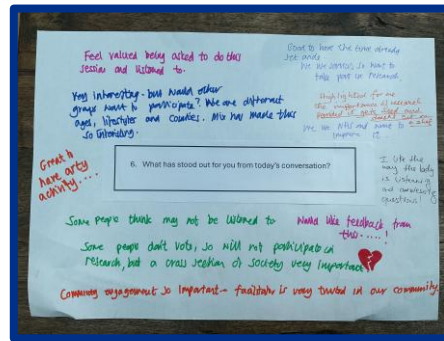 Feel valued being asked to do this
session and listened to.
Good to have the time already
set aside.
take part in research.
Very interesting - but would other
groups want to participate? We are different
ages, lifestyles and counties. Mix has made this
so interesting.
Highlighted for me
the importance of research
NHS and want to
improve it.
Great to
have arty
activity....
6. What has stood out for you from today's conversation?
I like the
way the body
is listening
and
questions!
Some people think may not be listened to
Would like feedback from
this.....!
Some people don't vote, so will not participate in
research, but a cross section of society very important
Community engagement so important - facilitator is very trusted in our community.